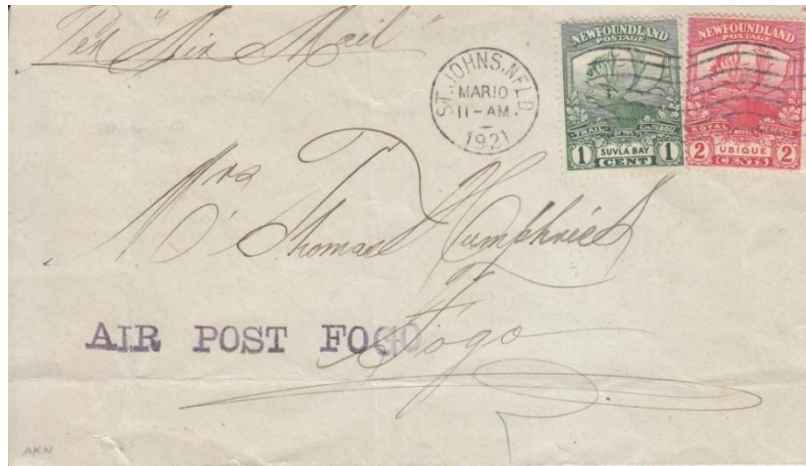 Per "Air Mail"
ST. JOHN'S. NFLD.
MAR 10
11 - AM.
1921
NEWFOUNDLAND
POSTAGE
TRAIL OF THE CARIBOU
SUVLA BAY
1 CENT 1
NEWFOUNDLAND
POSTAGE
ROYAL
UBIQUE
2 CENTS 2
Mrs Thomas Humphries
Fogo
AIR POST FOGO
AKN